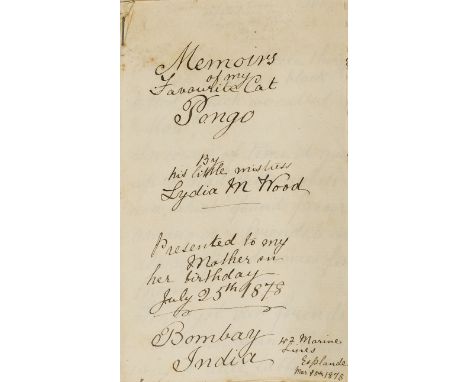 Memoirs
of my
Favourite Cat
Pongo
By
his little mistress
Lydia M Wood
Presented to my
Mother on
her birthday
July 25th 1878
Bombay
India
Marine
Lines
Esplande
Mar 8th 1878